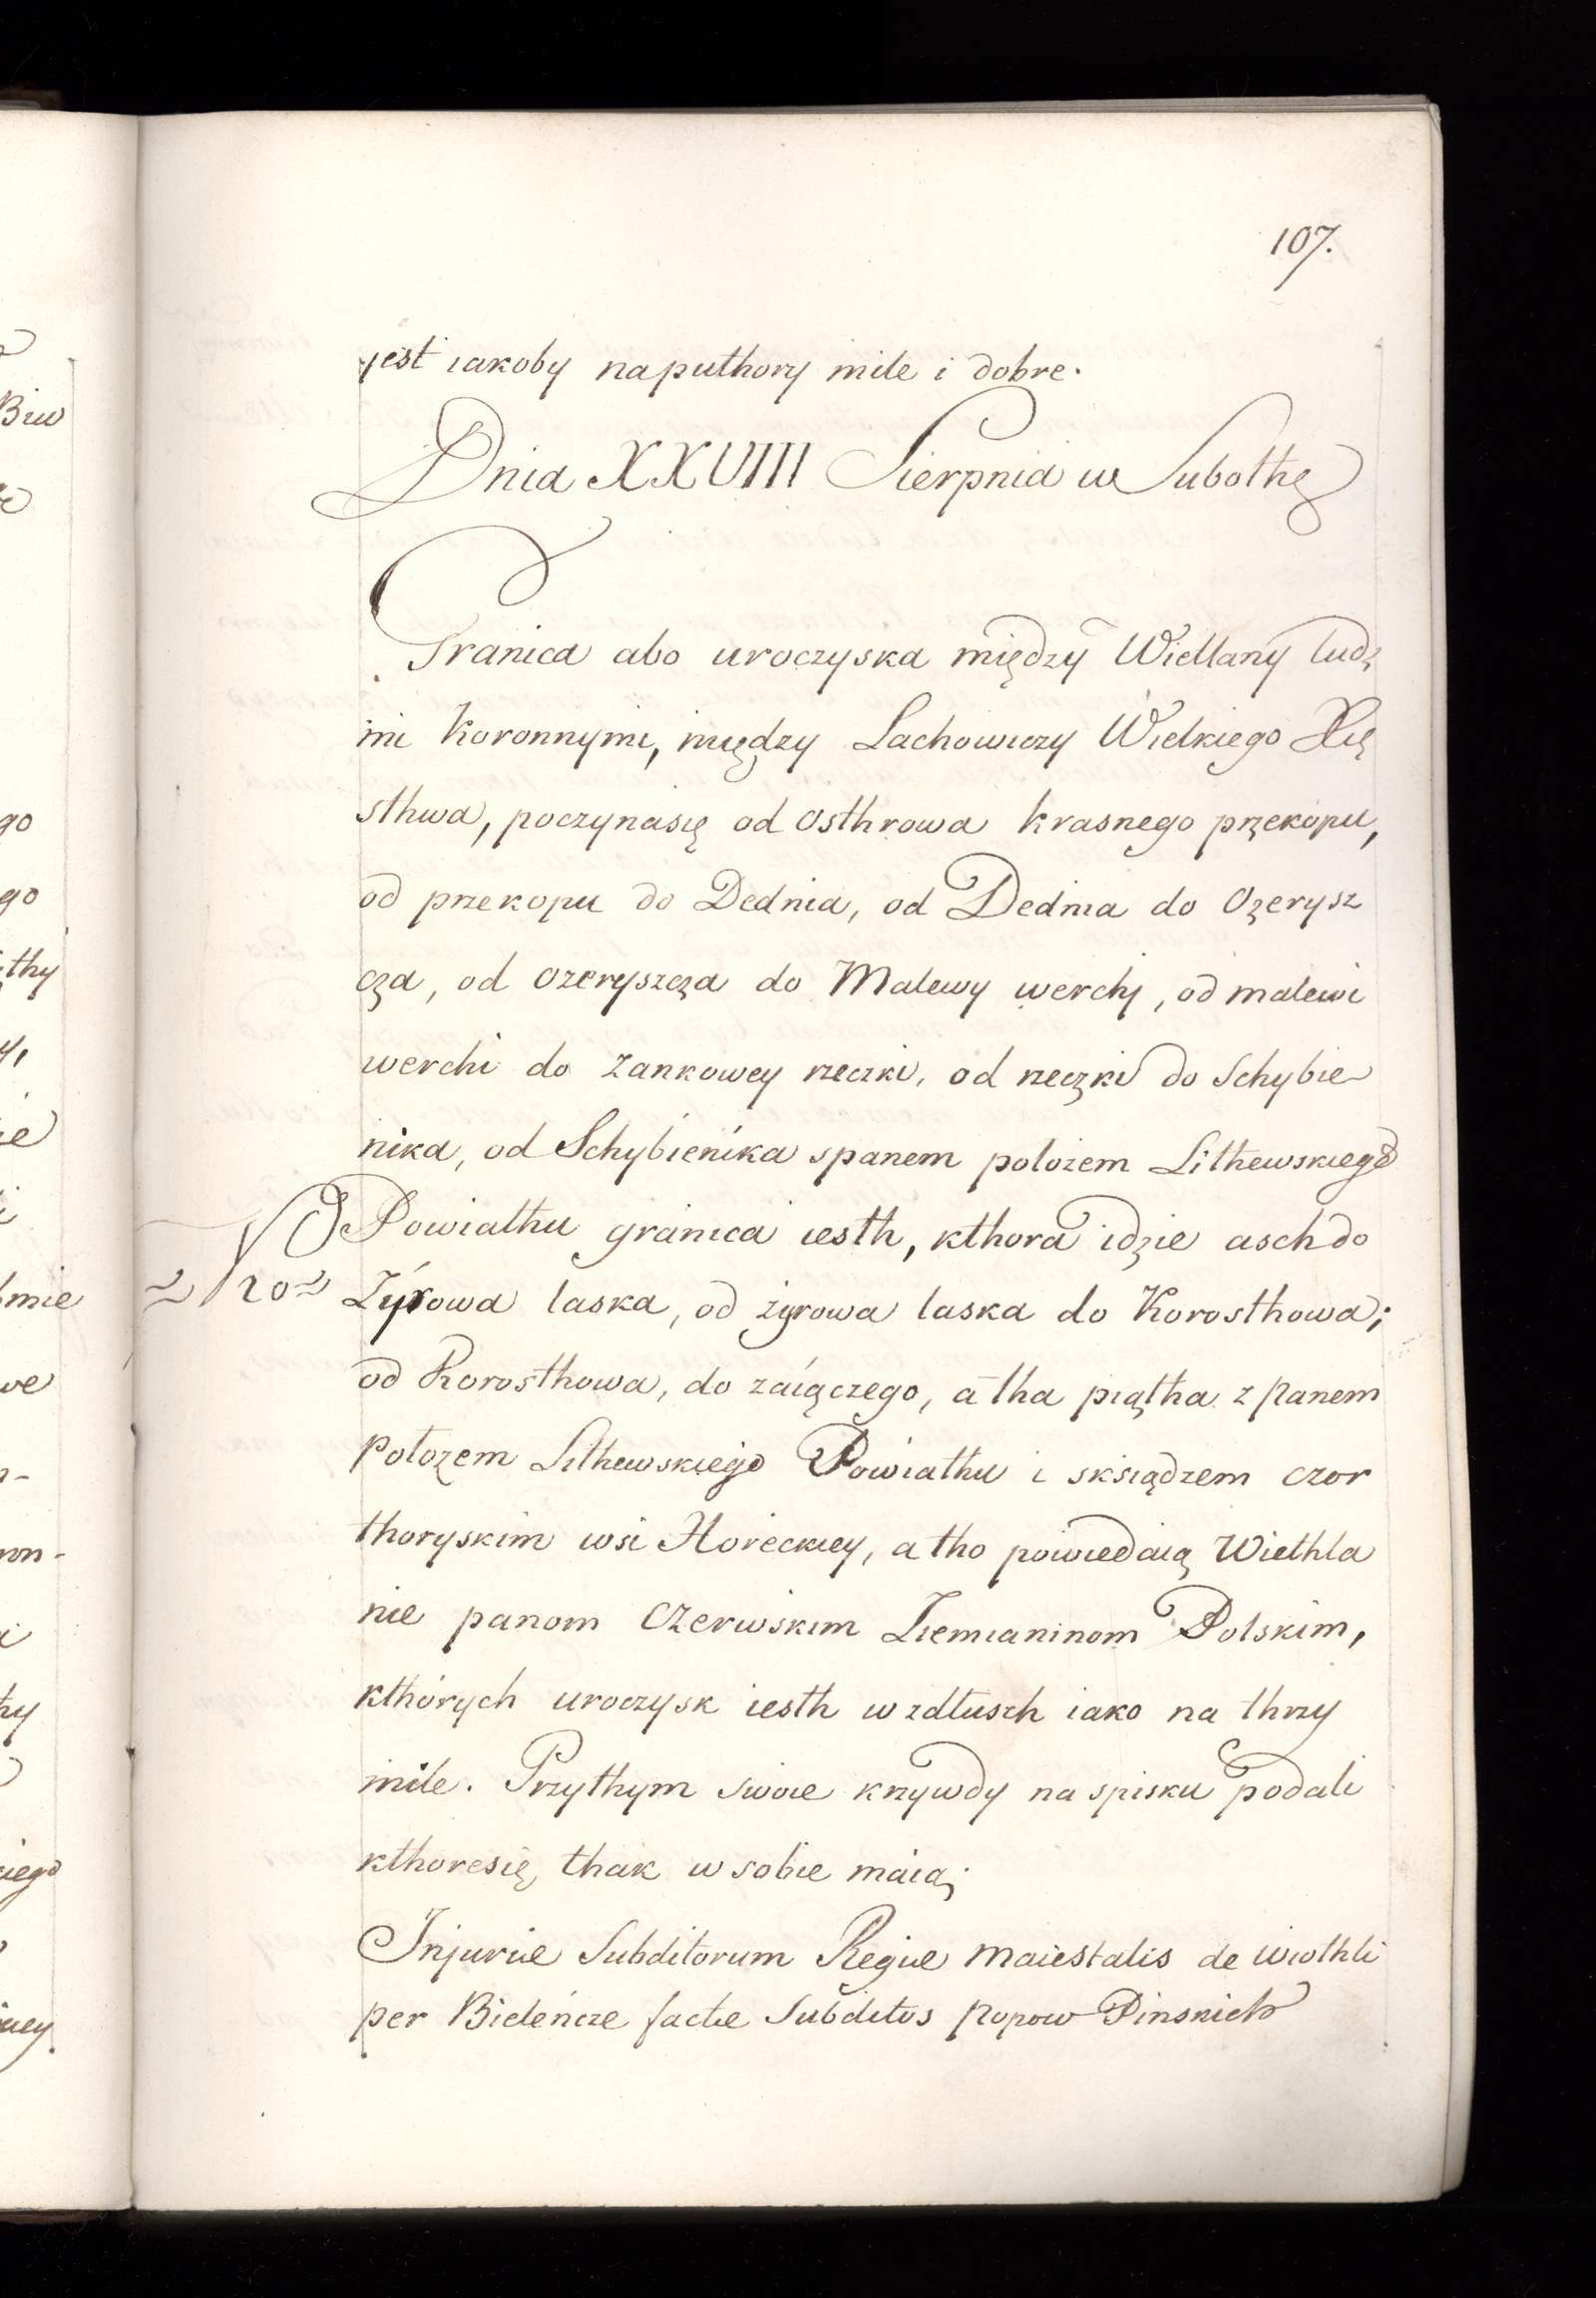 107.
jest iakoby naputhory mile i dobre.
Dnia XXVIII Sierpnia w Subothę
Granica abo uroczyska między Wietlany ludz
mi Koronnymi, między Lachowiczy Wielkiego Xię
sthwa, poczynasię od Osthrowa krasnego przekopu,
od przekopu do Dednia, od Dednia do Ozerysz
cza, od Ozeryszcza do Malewy werchj, od malewi
werchi do Zankowey rzeczki, od rzeczki do Schybie
nika, od Schybienika spanem polozem Lithewskiego
Powiathu granica iesth, kthora idzie asch do
Zyrowa laska, od żyrowa laska do Korosthowa;
20
od Korosthowa, do zaiączego, a tha piątha z panem
Połozem Lithewskiego Powiathu i sksiądzem czor
thoryskim wsi Horeckiey, a tho powiedaią Wiethla
nie panom Czerwiskim Ziemianinom Polskim,
kthórych uroczysk iesth wzdłusch iako na thrzy
mile. Przythym swoie krzywdy na spisku podali
kthoresię thak w sobie maią;
Injuriæ Subditorum Regiæ Maiestatis de wiothli
per Bieleńcze factæ Subditos popow Pinsnich